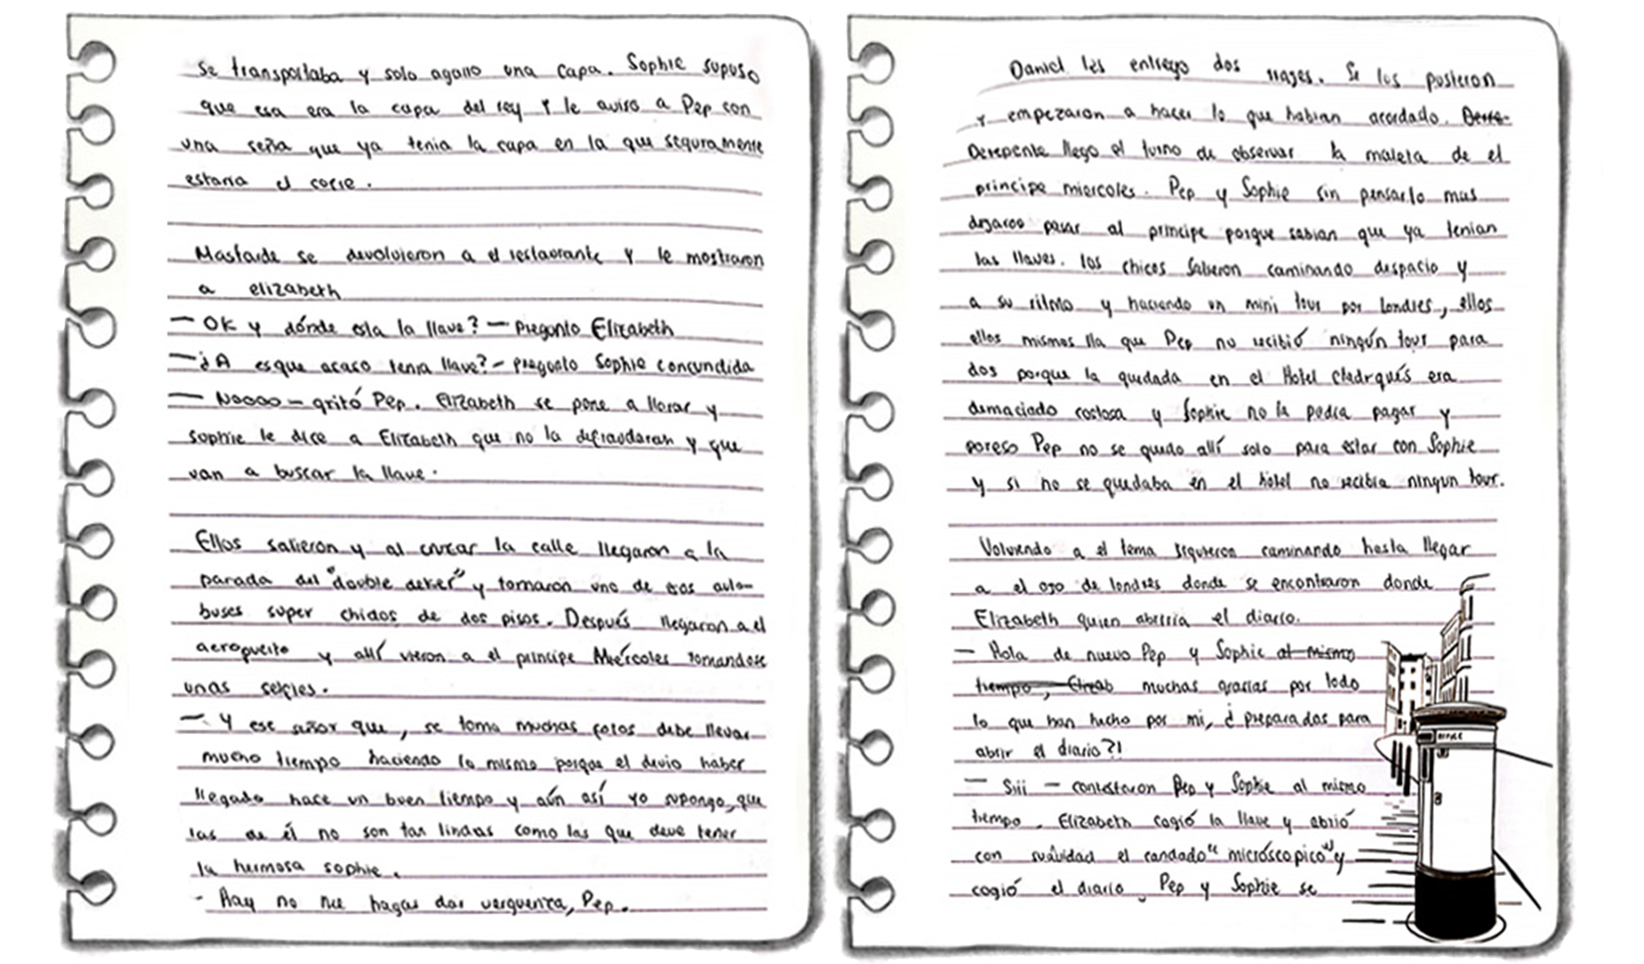 se transportaba y solo agarro una capa. Sophie supuso
que esa era la capa del rey Y le aviso a Pep con
una seña que ya tenia la capa en la que seguramente
estaria el cofre.
Mastarde se devolvieron a el restaurante Y le mostraron
a elizabeth
— OK y dónde esta la llave? — Pregunto Elizabeth
— ¿A esque acaso tenia llave? — pregunto Sophie concundida
— Noooo — gritó Pep. Elizabeth se pone a llorar y
sophie le dice a Elizabeth que no la defraudaran y que
van a buscar la llave.
Ellos salieron y al cruzar la calle llegaron a la
parada del "double deker" y tomaron uno de esos auto-
buses super chidos de dos pisos. Después llegaron a el
aeropuerto y allí vieron a el principe Miercoles tomandose
unas selfies.
— Y ese señor que, se toma muchas fotos debe llevar
mucho tiempo haciendo lo mismo porque el devio haber
llegado hace un buen tiempo y aún así yo supongo, que
las de él no son tan lindas como las que deve tener
la hermosa sophie.
- Hay no me hagas dar verguenza, Pep.
Daniel les entrego dos trajes. Se los pusieron
Y empezaron a hacer lo que habian acordado. Derre-
Derepente llego el turno de observar la maleta de el
principe miercoles. Pep y Sophie sin pensarlo mas
dejaron pasar al principe porque sabian que ya tenian
las llaves. los chicos salieron caminando despacio y
a su ritmo y haciendo un mini tour por londres, ellos
ellos mismos lla que Pep no recibió ningún tour para
dos porque la quedada en el Hotel
era
demaciado costosa y Sophie no la podia pagar y
poreso Pep no se quedo allí solo para estar con Sophie
y si no se quedaba en el hotel no recibia ningun tour.
Volviendo a el tema siguieron caminando hasta llegar
a el ojo de londres donde se encontraron donde
Elizabeth quien abriria el diario.
— Hola de nuevo Pep y Sophie al mismo
tiempo, Elizab muchas grasias por todo
lo que han hecho por mi, ¿ preparados para
abrir el diario?!
— Siii — contestaron Pep y Sophie al mismo
tiempo. Elizabeth cogió la llave y abrió
con suavidad el candado "microscopico" y
cogió el diario, Pep y Sophie se
OFFICE